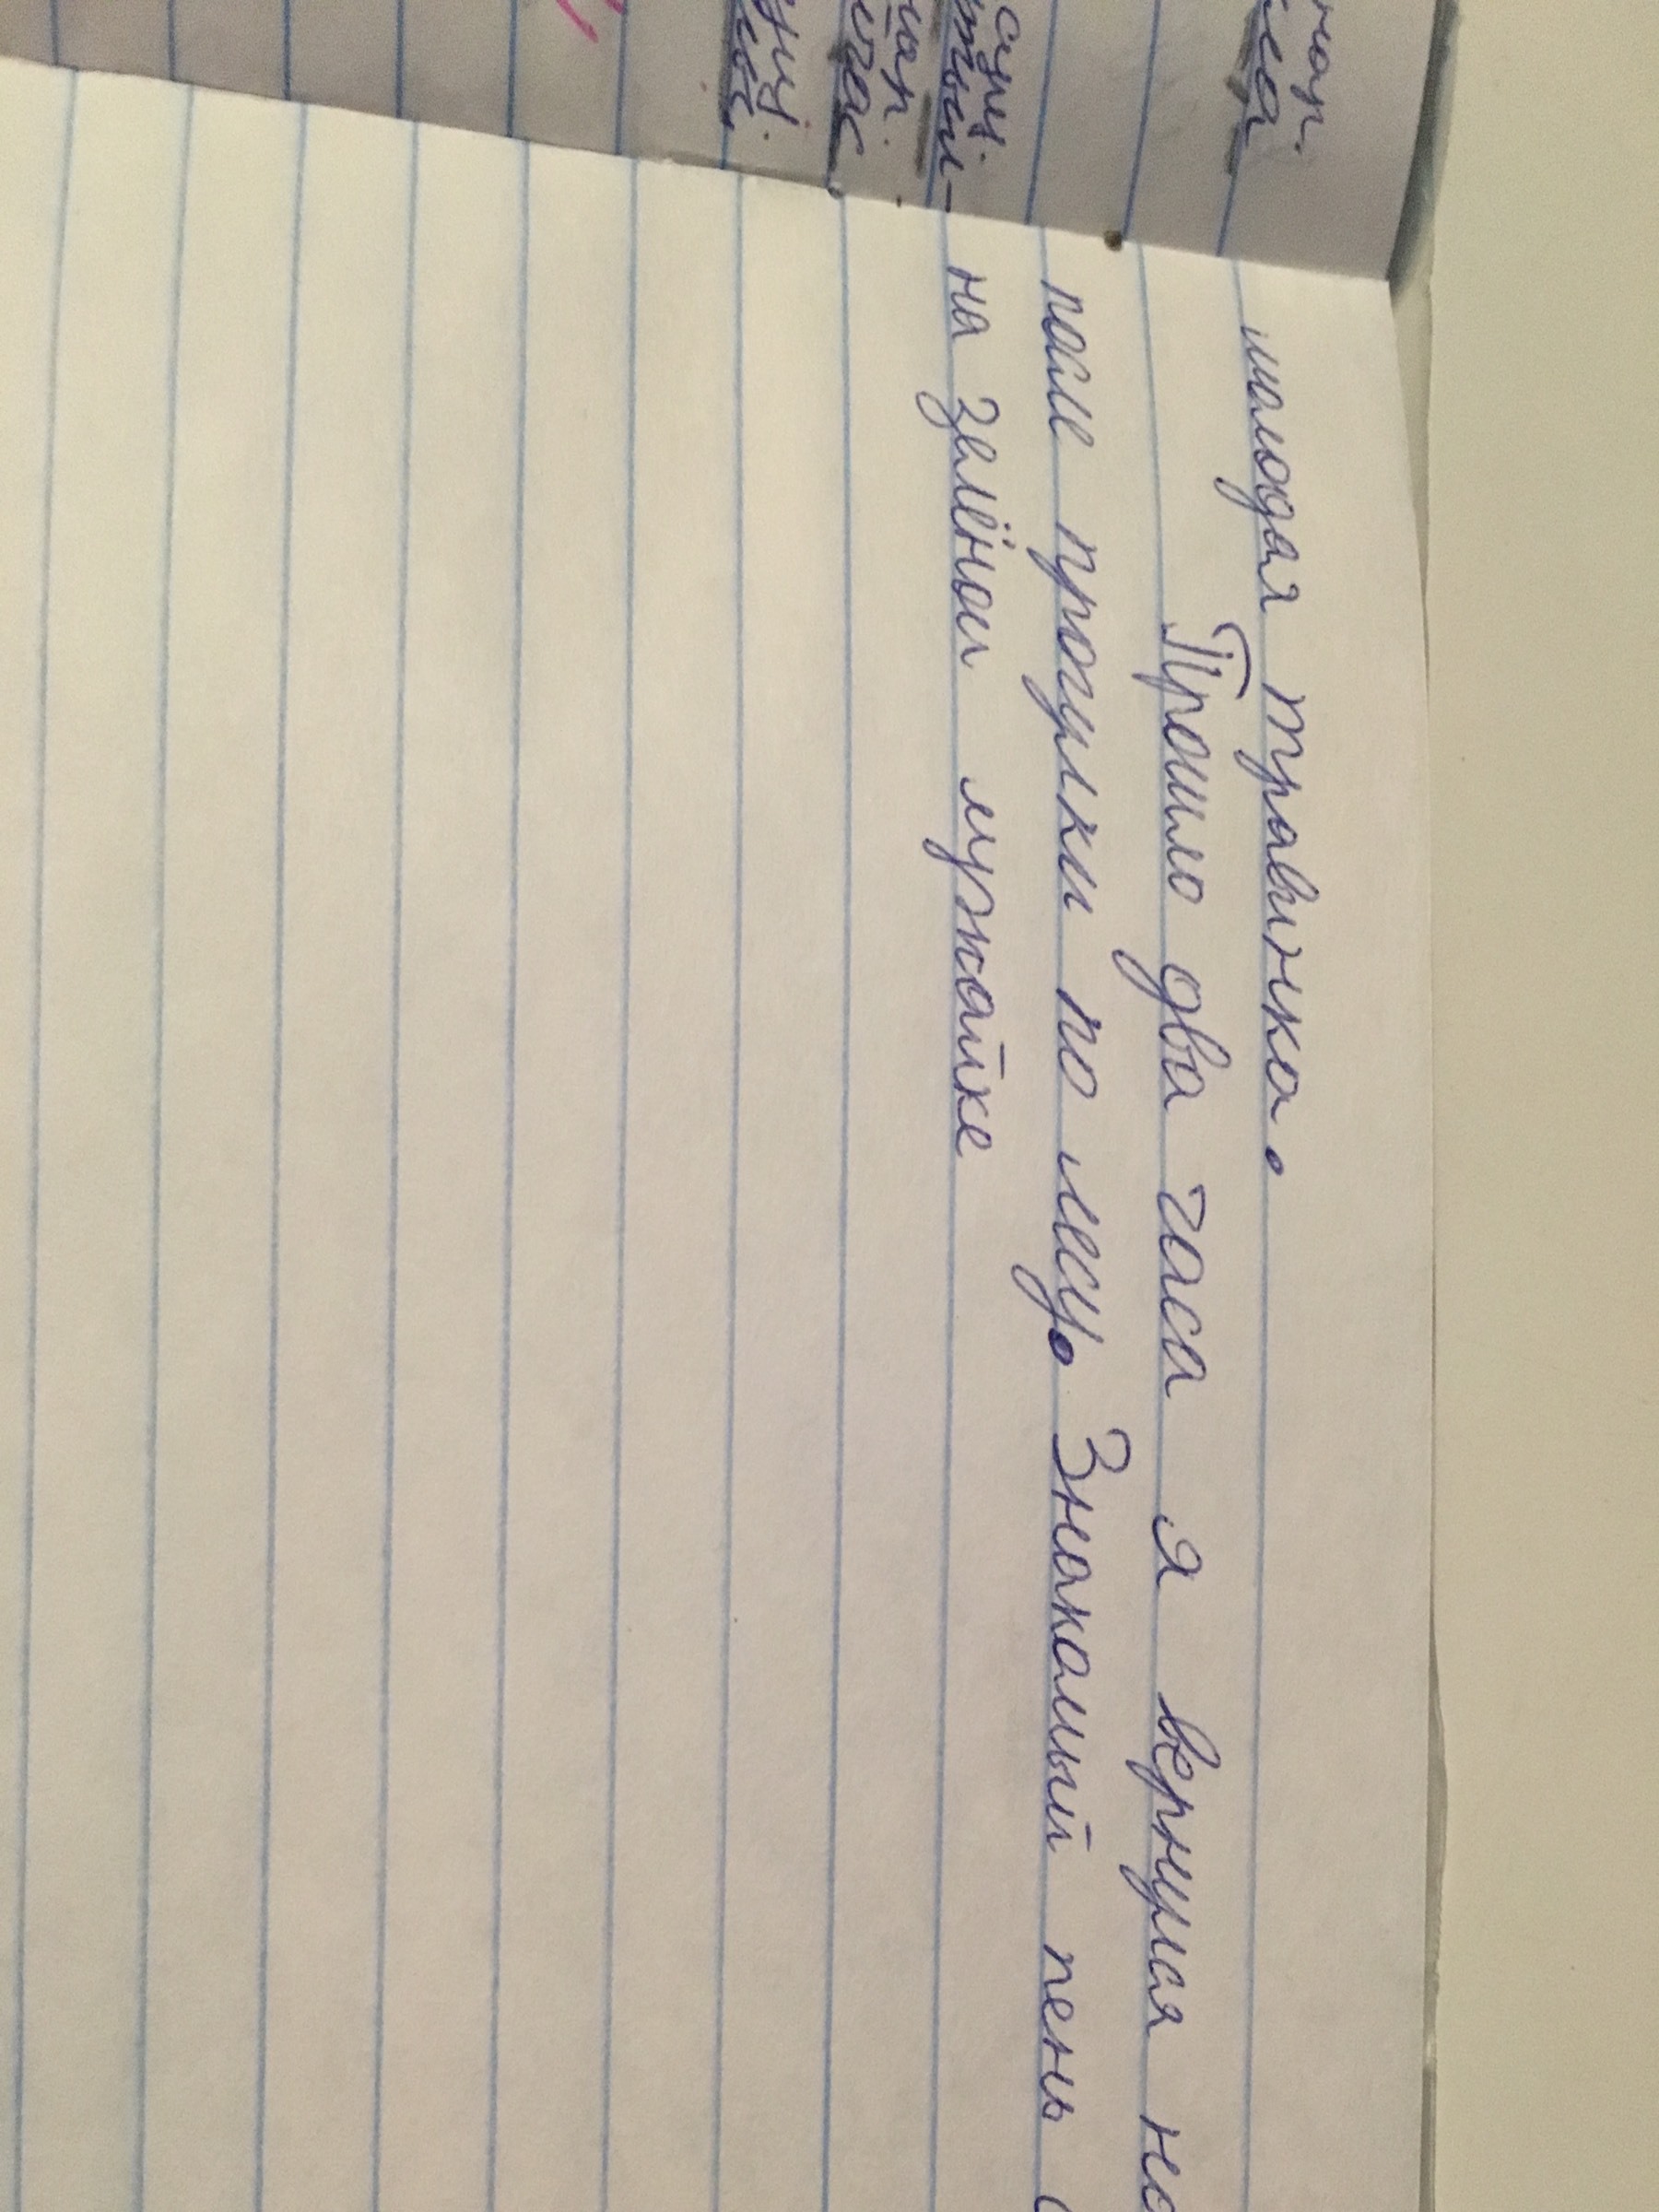 молодая травинка.
Прошло два часа я вернулся на
после прогулки по лесу. Знакомый пень
на зелёной лужайке